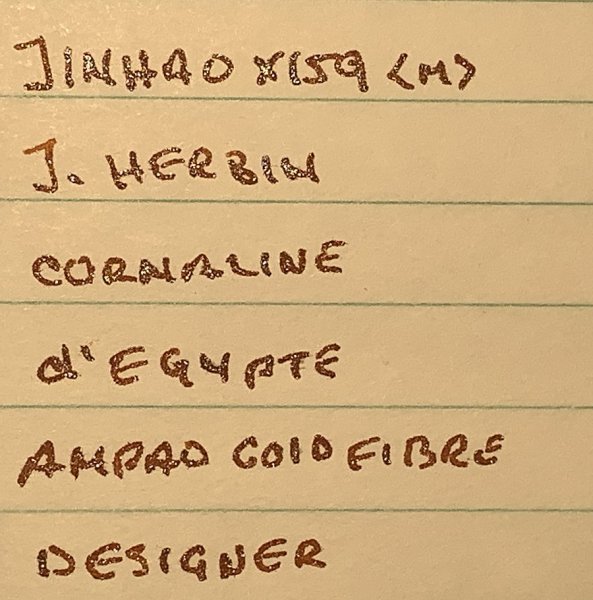 JINHAO X159 <M>
J. HERBIN
CORNALINE
d'EGYPTE
AMPAD GOLD FIBRE
DESIGNER